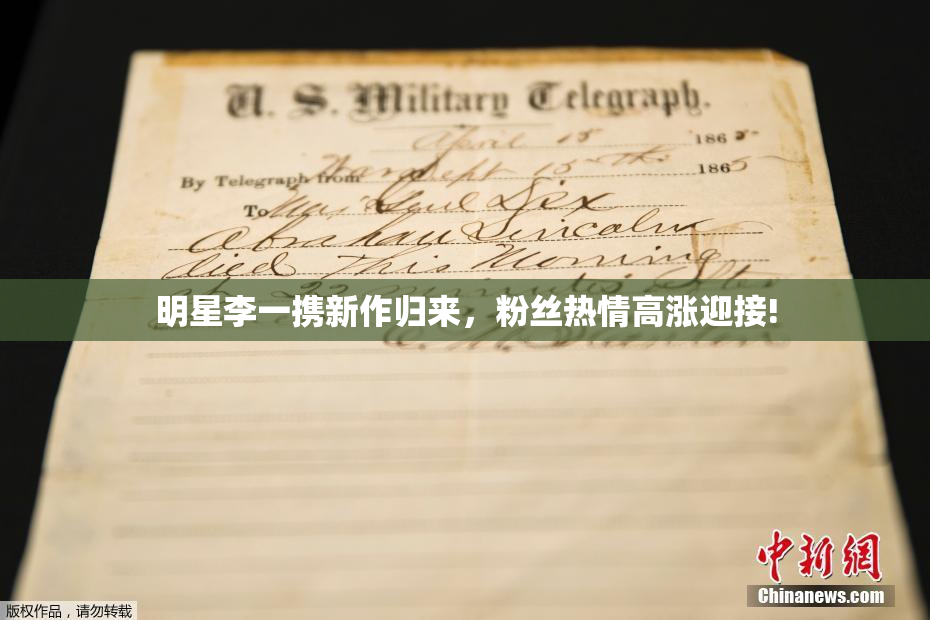 U. S. Military Telegraph.
April 15 1865
By Telegraph from War Dept 15th 1865
To Maj Genl Dix
Abraham Lincoln
died This Morning
at 22 minutes after
明星李一携新作归来，粉丝热情高涨迎接!
中新網
Chinanews.com
版权作品，请勿转载